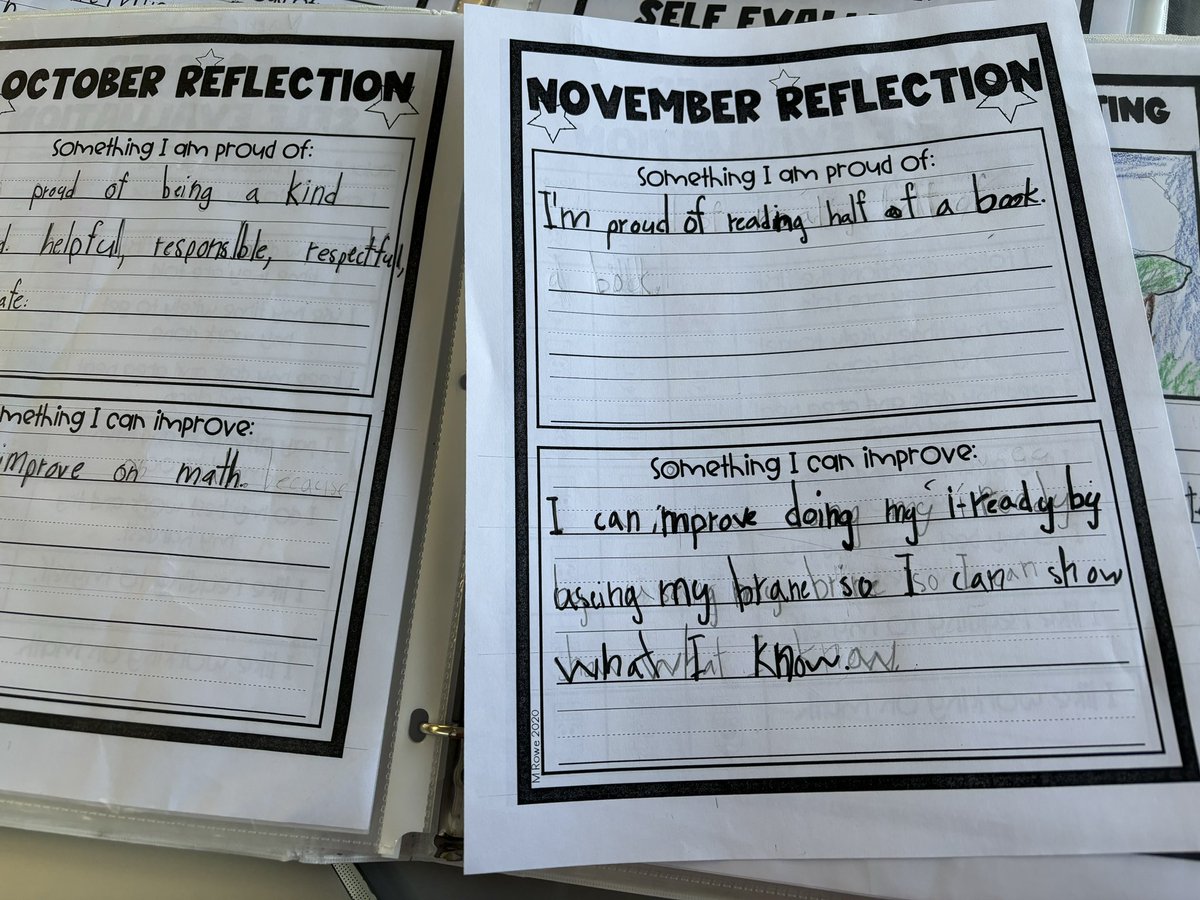 SELF EVALU
OCTOBER REFLECTION
Something I am proud of:
proud of being a kind
helpful, responsible, respectful,
afe.
mething I can improve:
improve on math. because
NOVEMBER REFLECTION
Something I am proud of:
I'm proud of reading half of a book.
a book.
Something I can improve:
I can improve doing my i-ready by
using my brane so I can show
what I know.
M Rowe 2020
TING